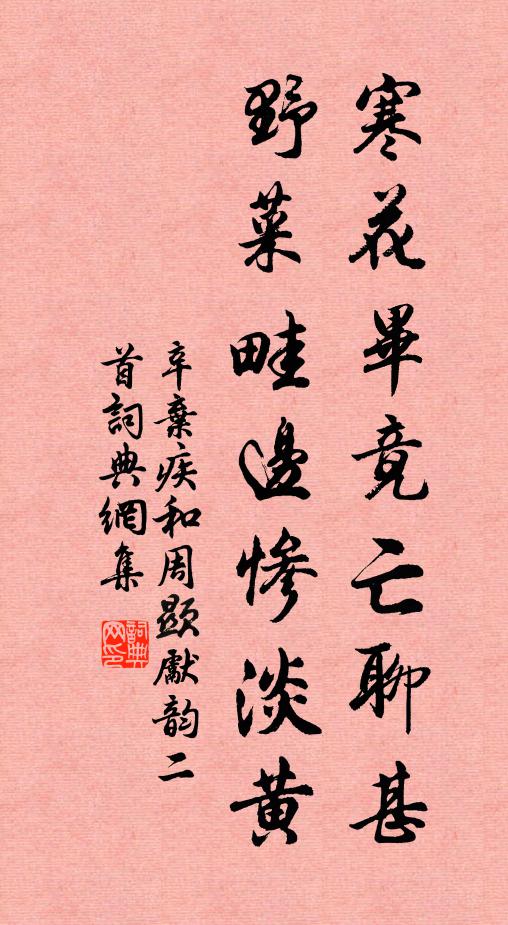 寒花畢竟亡聊甚
野菜畦邊慘淡黄
辛棄疾和周顯獻韵二
首詞典網集
詞典網印